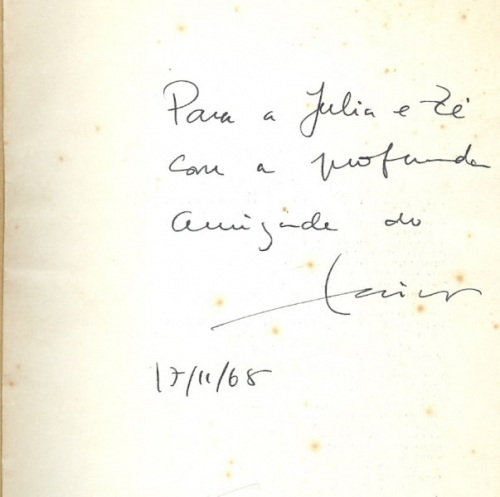 Para a Julia e Zé
com a profunda
amizade do
17/11/68